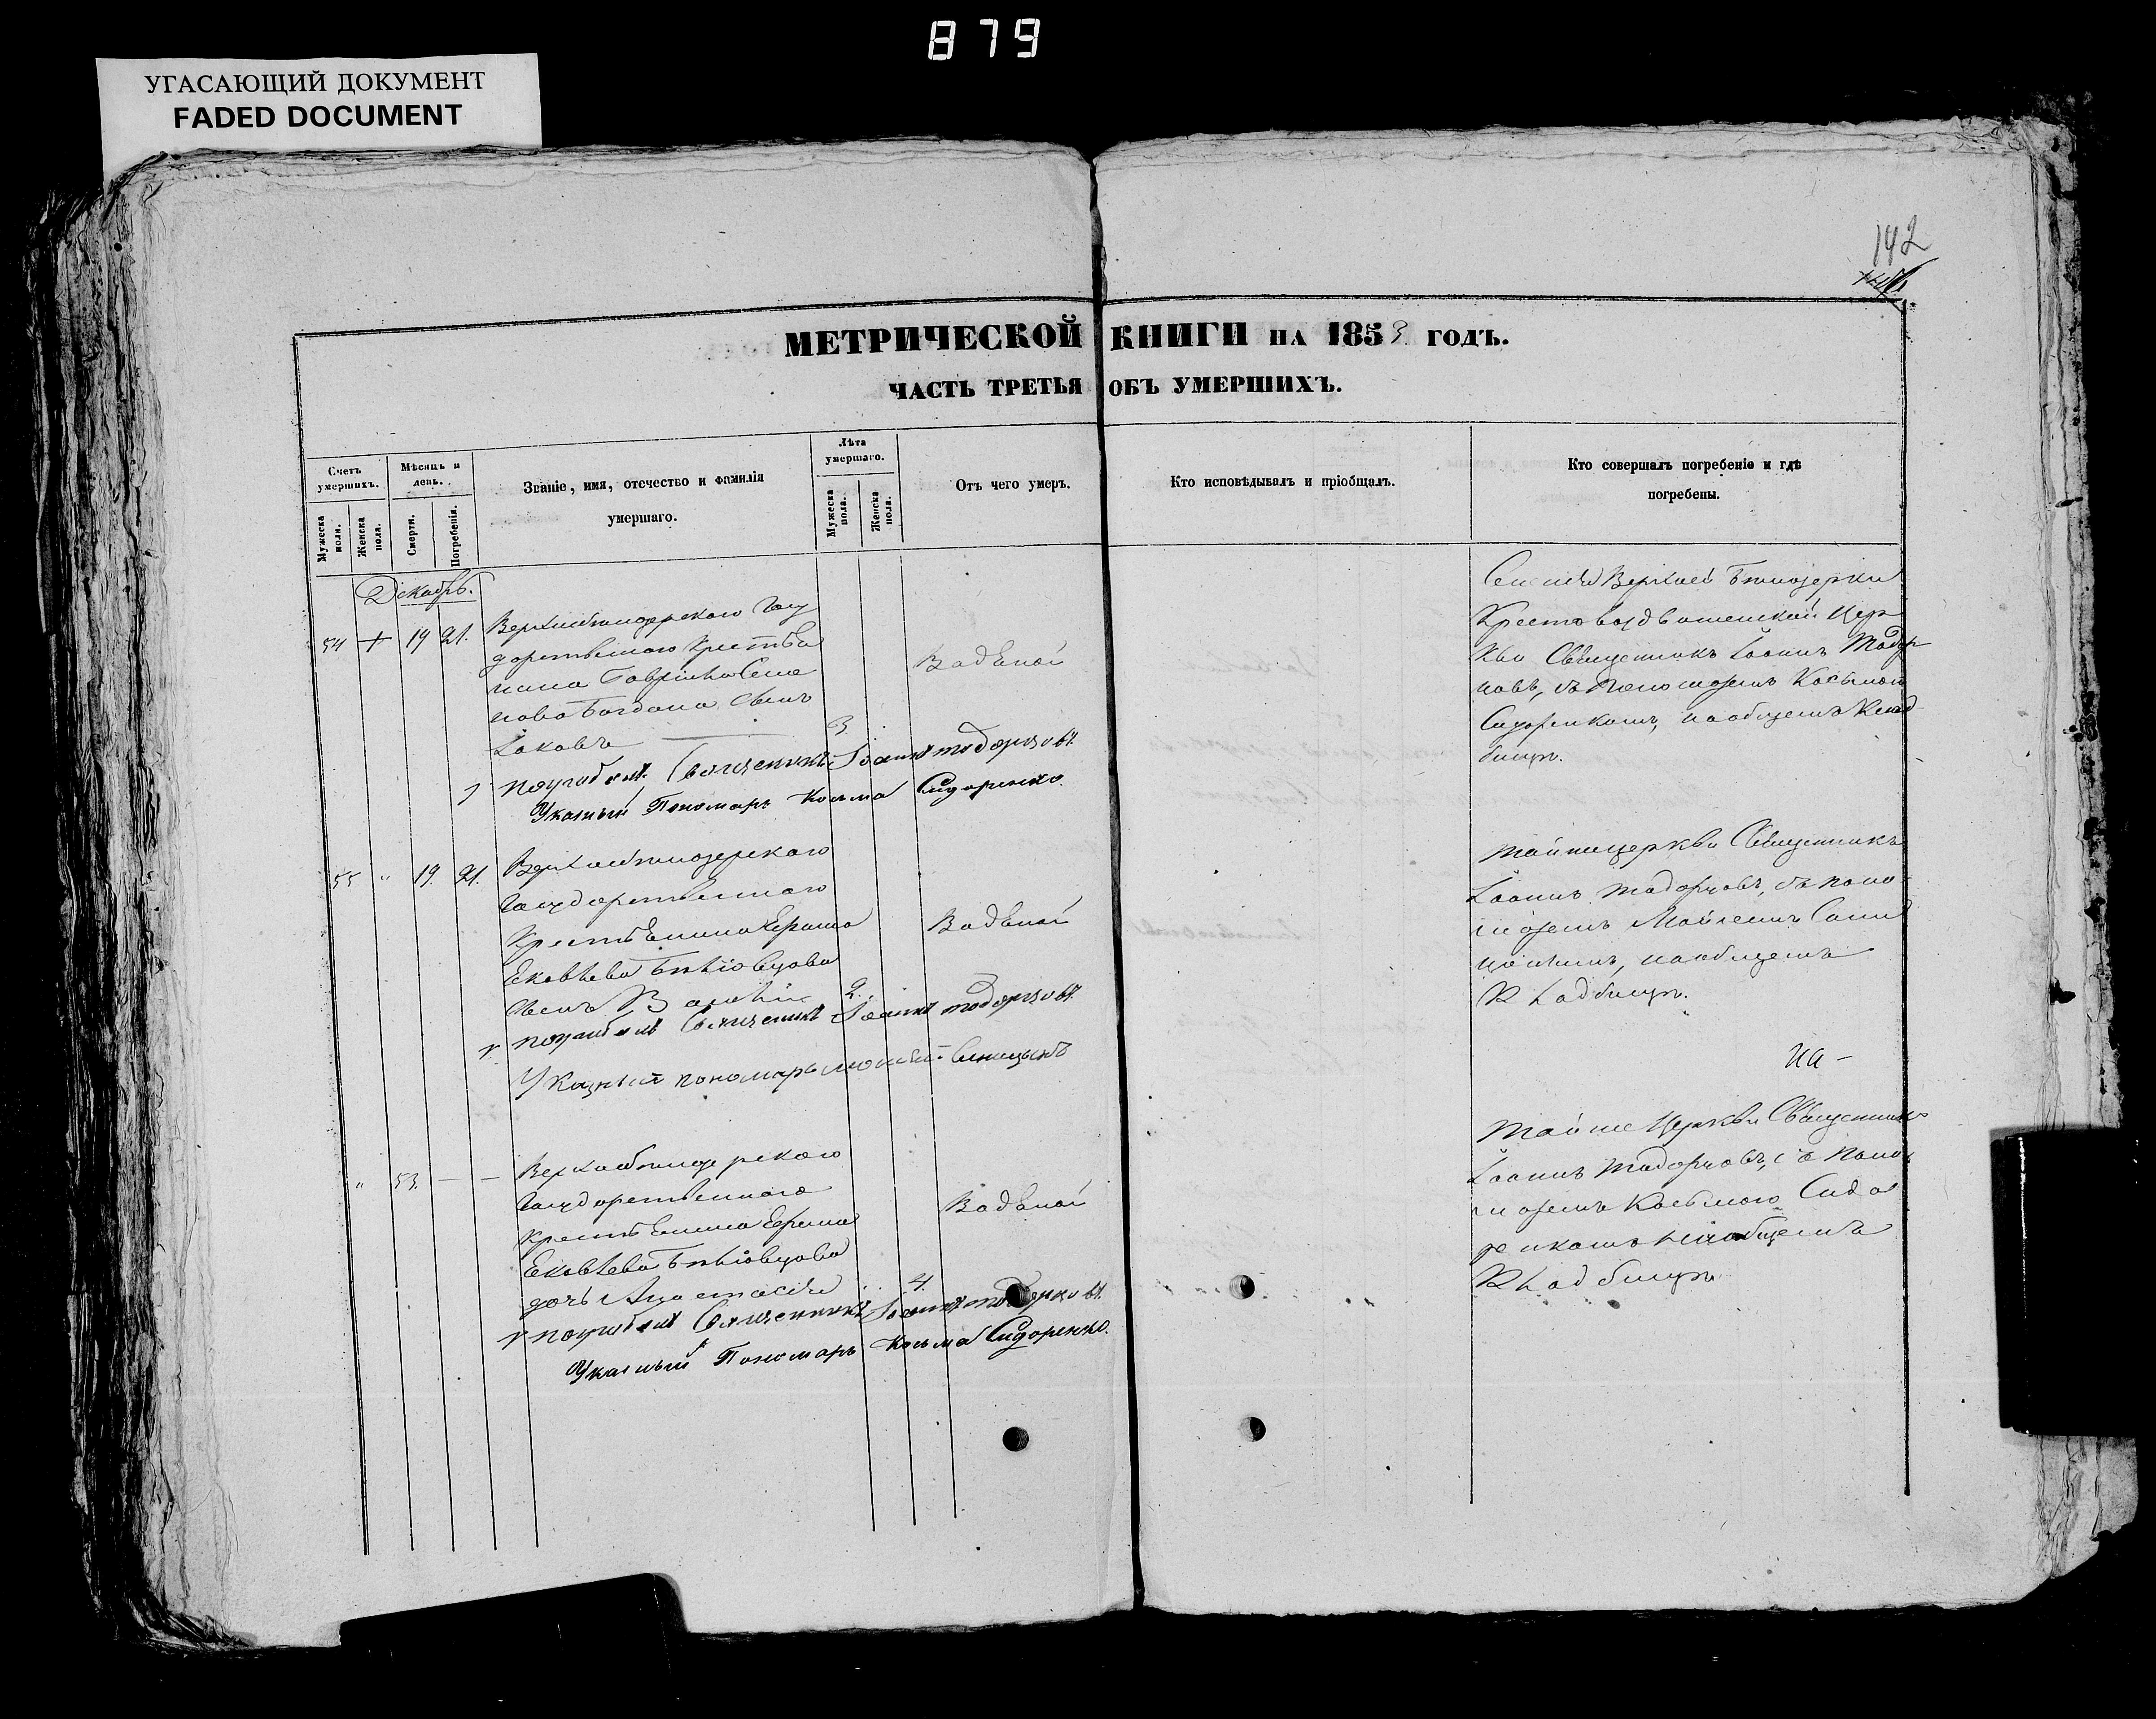 879
УГАСАЮЩИЙ ДОКУМЕНТ
FADED DOCUMENT
142
МЕТРИЧЕСКОЙ КНИГИ НА 1853 ГОДЪ.
ЧАСТЬ ТРЕТЬЯ ОБЪ УМЕРШИХЪ.
Счетъ умершихъ.
Мужеска пола.
Женска пола.
Мѣсяцъ и день.
Смерти.
Погребенія.
Званіе, имя, отечество и фамилія умершаго.
Лѣта умершаго.
Мужеска пола.
Женска пола.
Отъ чего умеръ.
Кто исповѣдывалъ и пріобщалъ.
Кто совершалъ погребеніе и гдѣ погребены.
Декабрь.
54 + 19 21.
Государственного Крестья
нина Гаврiила Семе
нова Богдана сынъ
Іаковъ
3
Священникъ Іоаннъ Тодорцовъ.
Указный Пономарь Козьма Сидоренко.
Верхней Бѣлозерки
Крестовоздвиженской Цер
кви Священникъ Іоаннъ Тодор
цовъ, съ Пономаремъ Косьмою
Сидоренкомъ, на общемъ Клад
бищѣ.
55 " 19. 21.
Государственного
Крестьянина
сынъ
2.
Священникъ Іоаннъ Тодорцовъ.
Указный пономарь Моисей Синицынъ
Тойже церкви Священникъ
Іоаннъ Тодорцовъ, съ поно
маремъ Моисеемъ Сини
цынымъ, на общемъ
Кладбищѣ.
на-
" 53. — —
Государственного
Крестьянина
дочь Анастасія
4.
Священникъ Іоаннъ Тодорцовъ.
Указный Пономарь Козьма Сидоренко.
Тойже Церкви Священникъ
Іоаннъ Тодорцовъ, съ Поно
маремъ Косьмою Сидо
ренкомъ на общемъ
Кладбищѣ